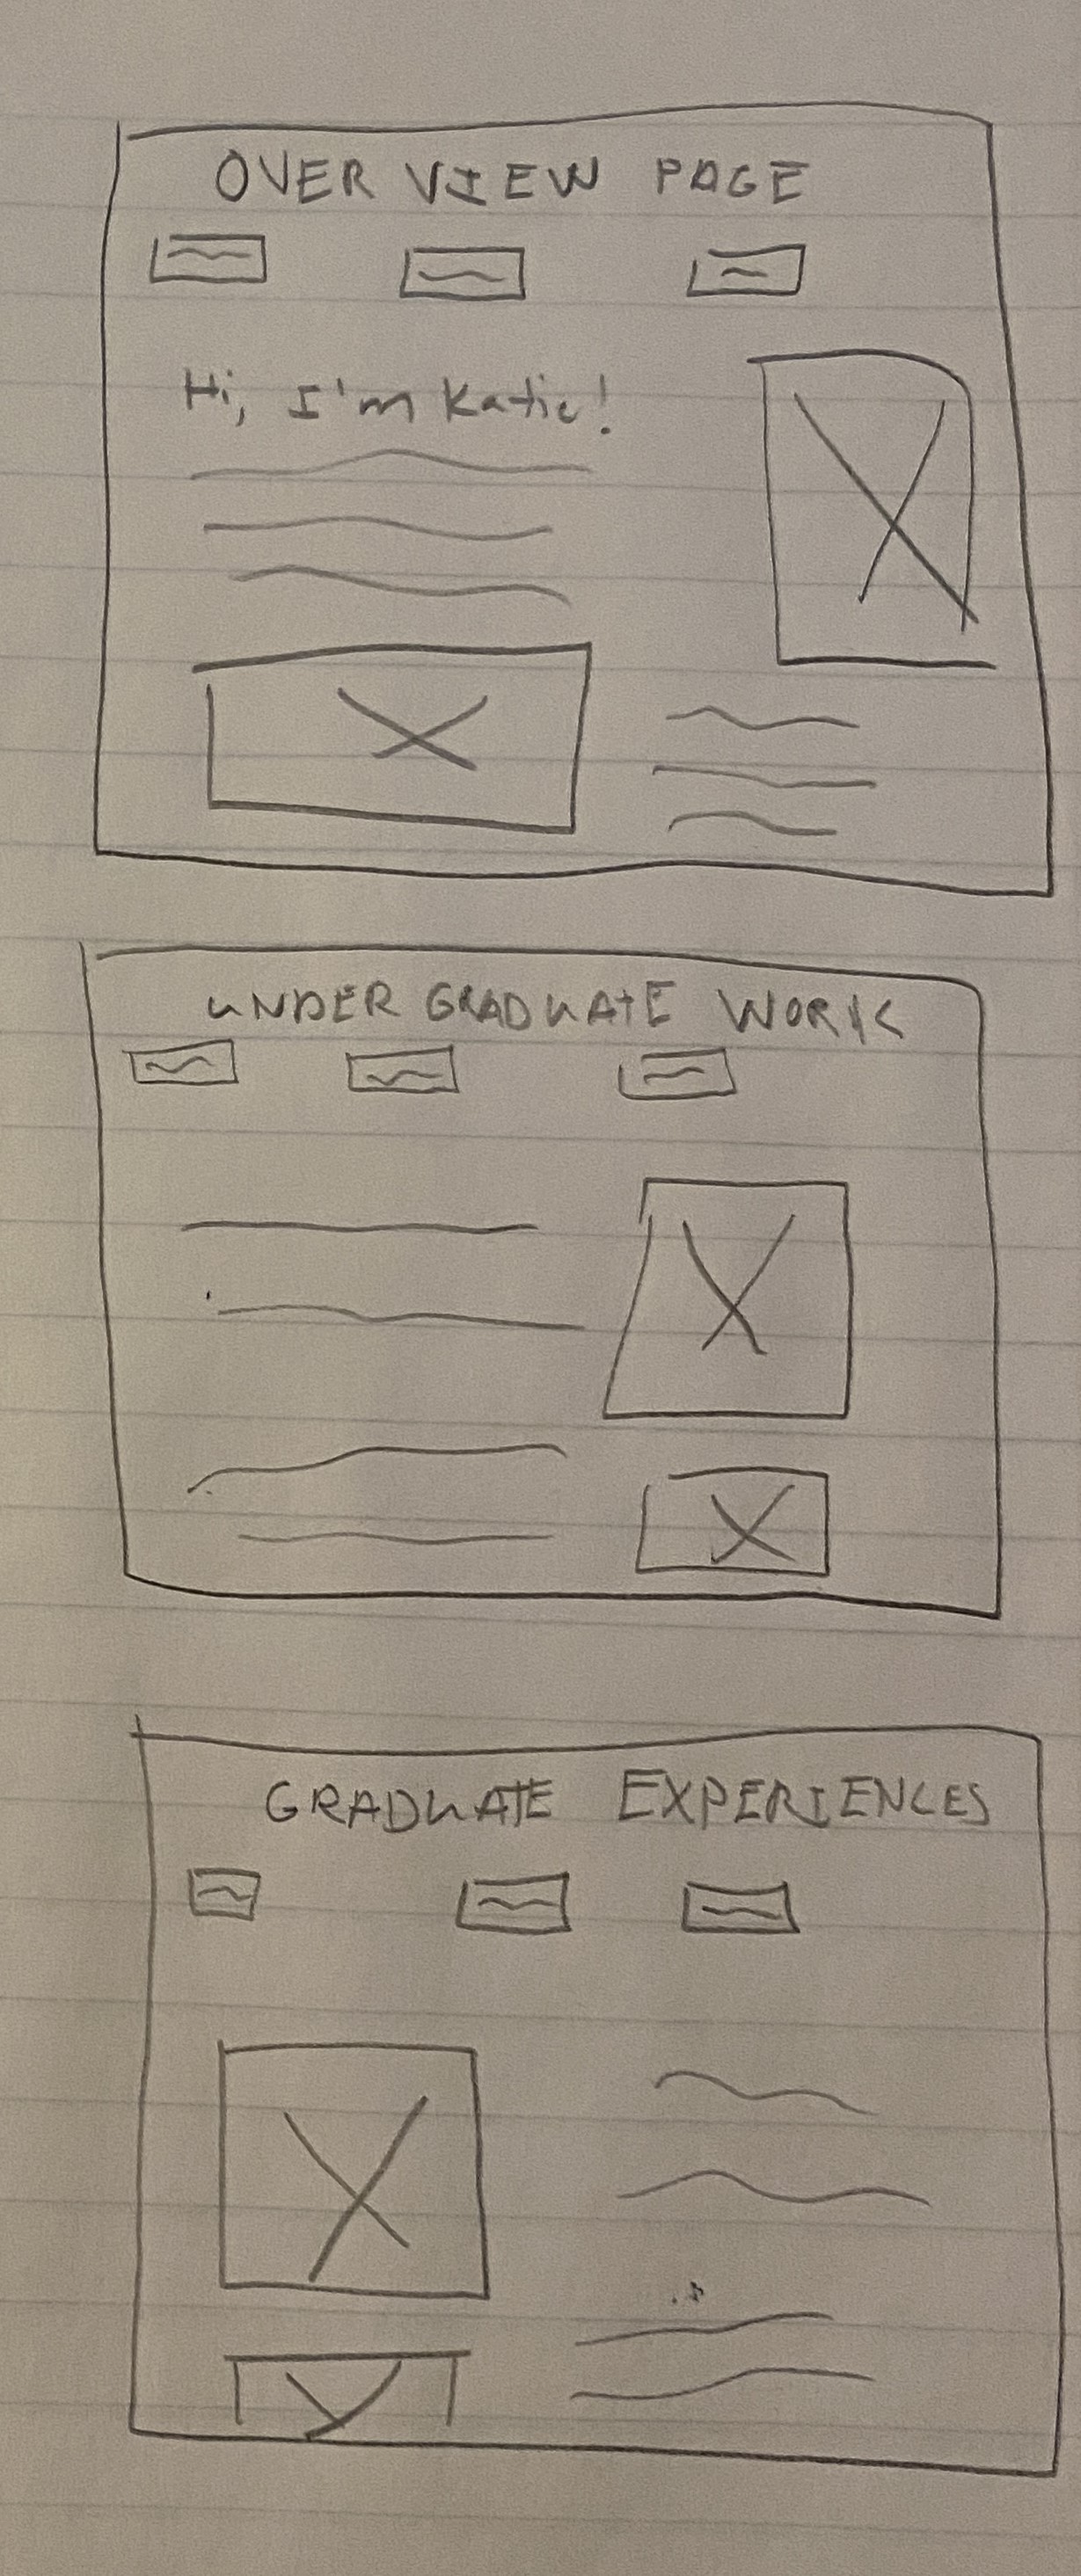 OVERVIEW PAGE
Hi, I'm Katie!
UNDERGRADUATE WORK
GRADUATE EXPERIENCES